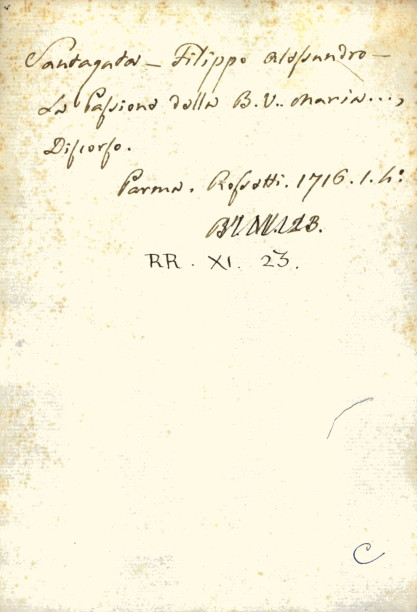 Santagata - Filippo Alessandro -
La Passione della B. V. Maria...,
Discorso.
Parma. Rossetti. 1716. 1. 4°
RR. XI. 23.
C